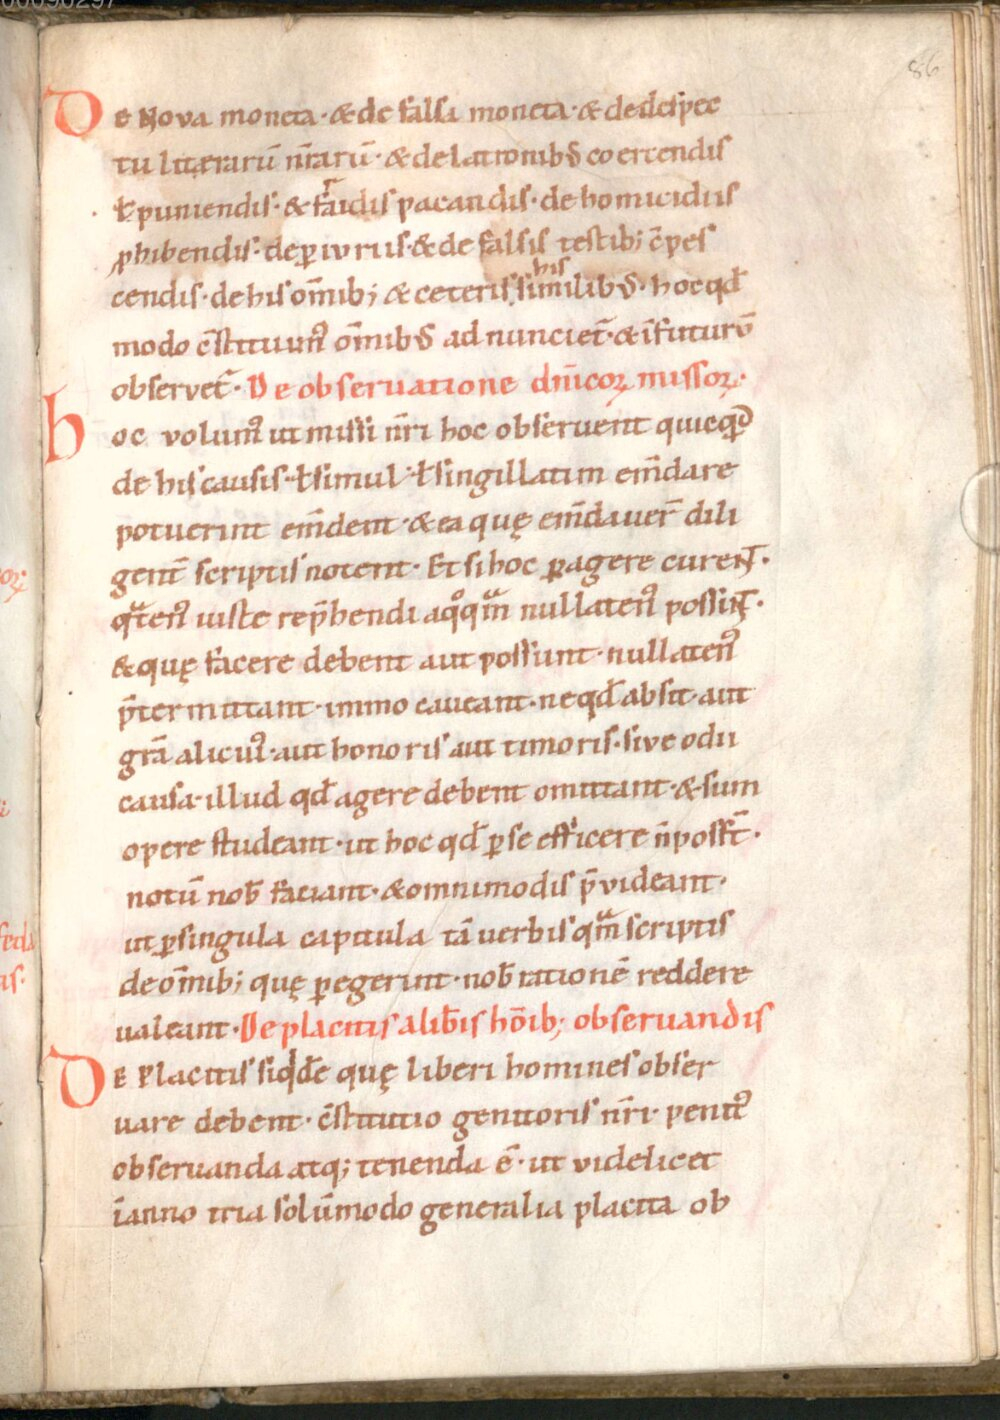 86
De Nova moneta · & de falsa moneta · & dedespec
tu litterarū nr̄arū · & delatronibꝰ coercendis
ł puniendis · & faidis pacandis · de homicidiis
ꝓhibendis · deꝑiuriis · & de falsis testib; cōpes
cendis · de his om̄ib; & ceteris his similibꝰ · hoc qd̄
modo c̄stituimꝰ om̄ibꝰ ad nuncietᷣ · & īfuturū
observetᷣ · De obseruatione dn̄icoꝝ missoꝝ ·
hoc volumꝰ ut missi nr̄i hoc obseruent quicq̄d
de his causis · ł simul · ł singillatim em̄dare
potuerint em̄dent · & ea quę em̄dauer̄ dili
gent̄ scriptis notent · Et si hoc ꝑagere curent ·
qᵃtenꝰ iuste rep̄hendi aqᵒqᵃm nullatenꝰ possint ·
& quę facere debent aut possunt · nullatenꝰ
p̄termittant · immo caueant · ne qd̄ absit · aut
gr̄a alicuiꝰ · aut honoris aut timoris · sive odii
causa · illud qd̄ agere debent omittant · & sum
opere studeant · ut hoc qd̄ ꝑ se efficere n̄ posst̄ ·
notū nob̄ faciant · & omnimodis p̄videant ·
ut ꝑ singula capitula tā uerbis qᵃm scriptis
de om̄ib; quę ꝑegerint · nob̄ rationē reddere
ualeant · De placitis a lib̄is hōib; obseruandis
DE Placitis siqͥdē quę liberi homines obser
uare debent · c̄stitutio genitoris nr̄i · penitꝰ
obseruanda atq; tenenda ē · ut videlicet
ī anno tria solūmodo generalia placita ob